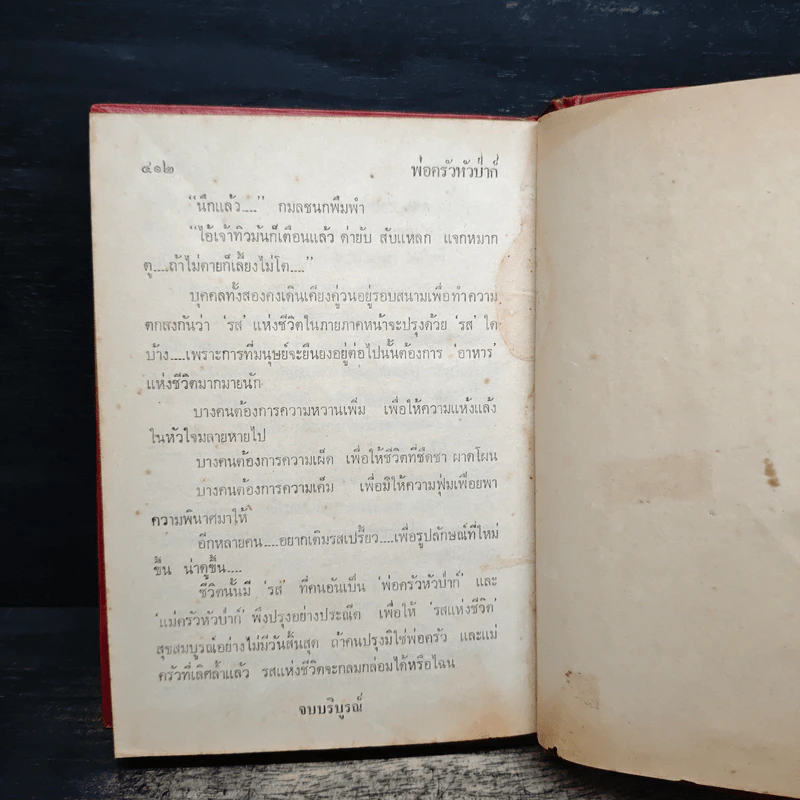 ๔๑๒
พ่อครัวหัวป่าก์
“นึกแล้ว....” กมลชนกพึมพำ
“ไอ้เจ้าทิวมันก็เตือนแล้ว ค่ายับ สับแหลก แจกหมาก
ตู....ถ้าไม่ตายก็เลี้ยงไม่โต....”
บุคคลทั้งสองคงเดินเคียงคู่วนอยู่รอบสนามเพื่อทำความ
ตกลงกันว่า ‘รส’ แห่งชีวิตในภายภาคหน้าจะปรุงด้วย ‘รส’ ใด
บ้าง....เพราะการที่มนุษย์จะยืนยงอยู่ต่อไปนั้นต้องการ ‘อาหาร’
แห่งชีวิตมากมายนัก
บางคนต้องการความหวานเพิ่ม เพื่อให้ความแห้งแล้ง
ในหัวใจมลายหายไป
บางคนต้องการความเผ็ด เพื่อให้ชีวิตที่ชืดชา ผาดโผน
บางคนต้องการความเค็ม เพื่อมิให้ความฟุ่มเฟือยพา
ความพินาศมาให้
อีกหลายคน....อยากเติมรสเปรี้ยว....เพื่อรูปลักษณ์ที่ใหม่
ขึ้น น่าดูขึ้น....
ชีวิตนั้นมี ‘รส’ ที่คนอันเป็น ‘พ่อครัวหัวป่าก์’ และ
‘แม่ครัวหัวป่าก์’ พึงปรุงอย่างประณีต เพื่อให้ ‘รสแห่งชีวิต’
สุขสมบูรณ์อย่างไม่มีวันสิ้นสุด ถ้าคนปรุงมิใช่พ่อครัว และแม่
ครัวที่เลิศล้ำแล้ว รสแห่งชีวิตจะกลมกล่อมได้หรือไฉน
จบบริบูรณ์